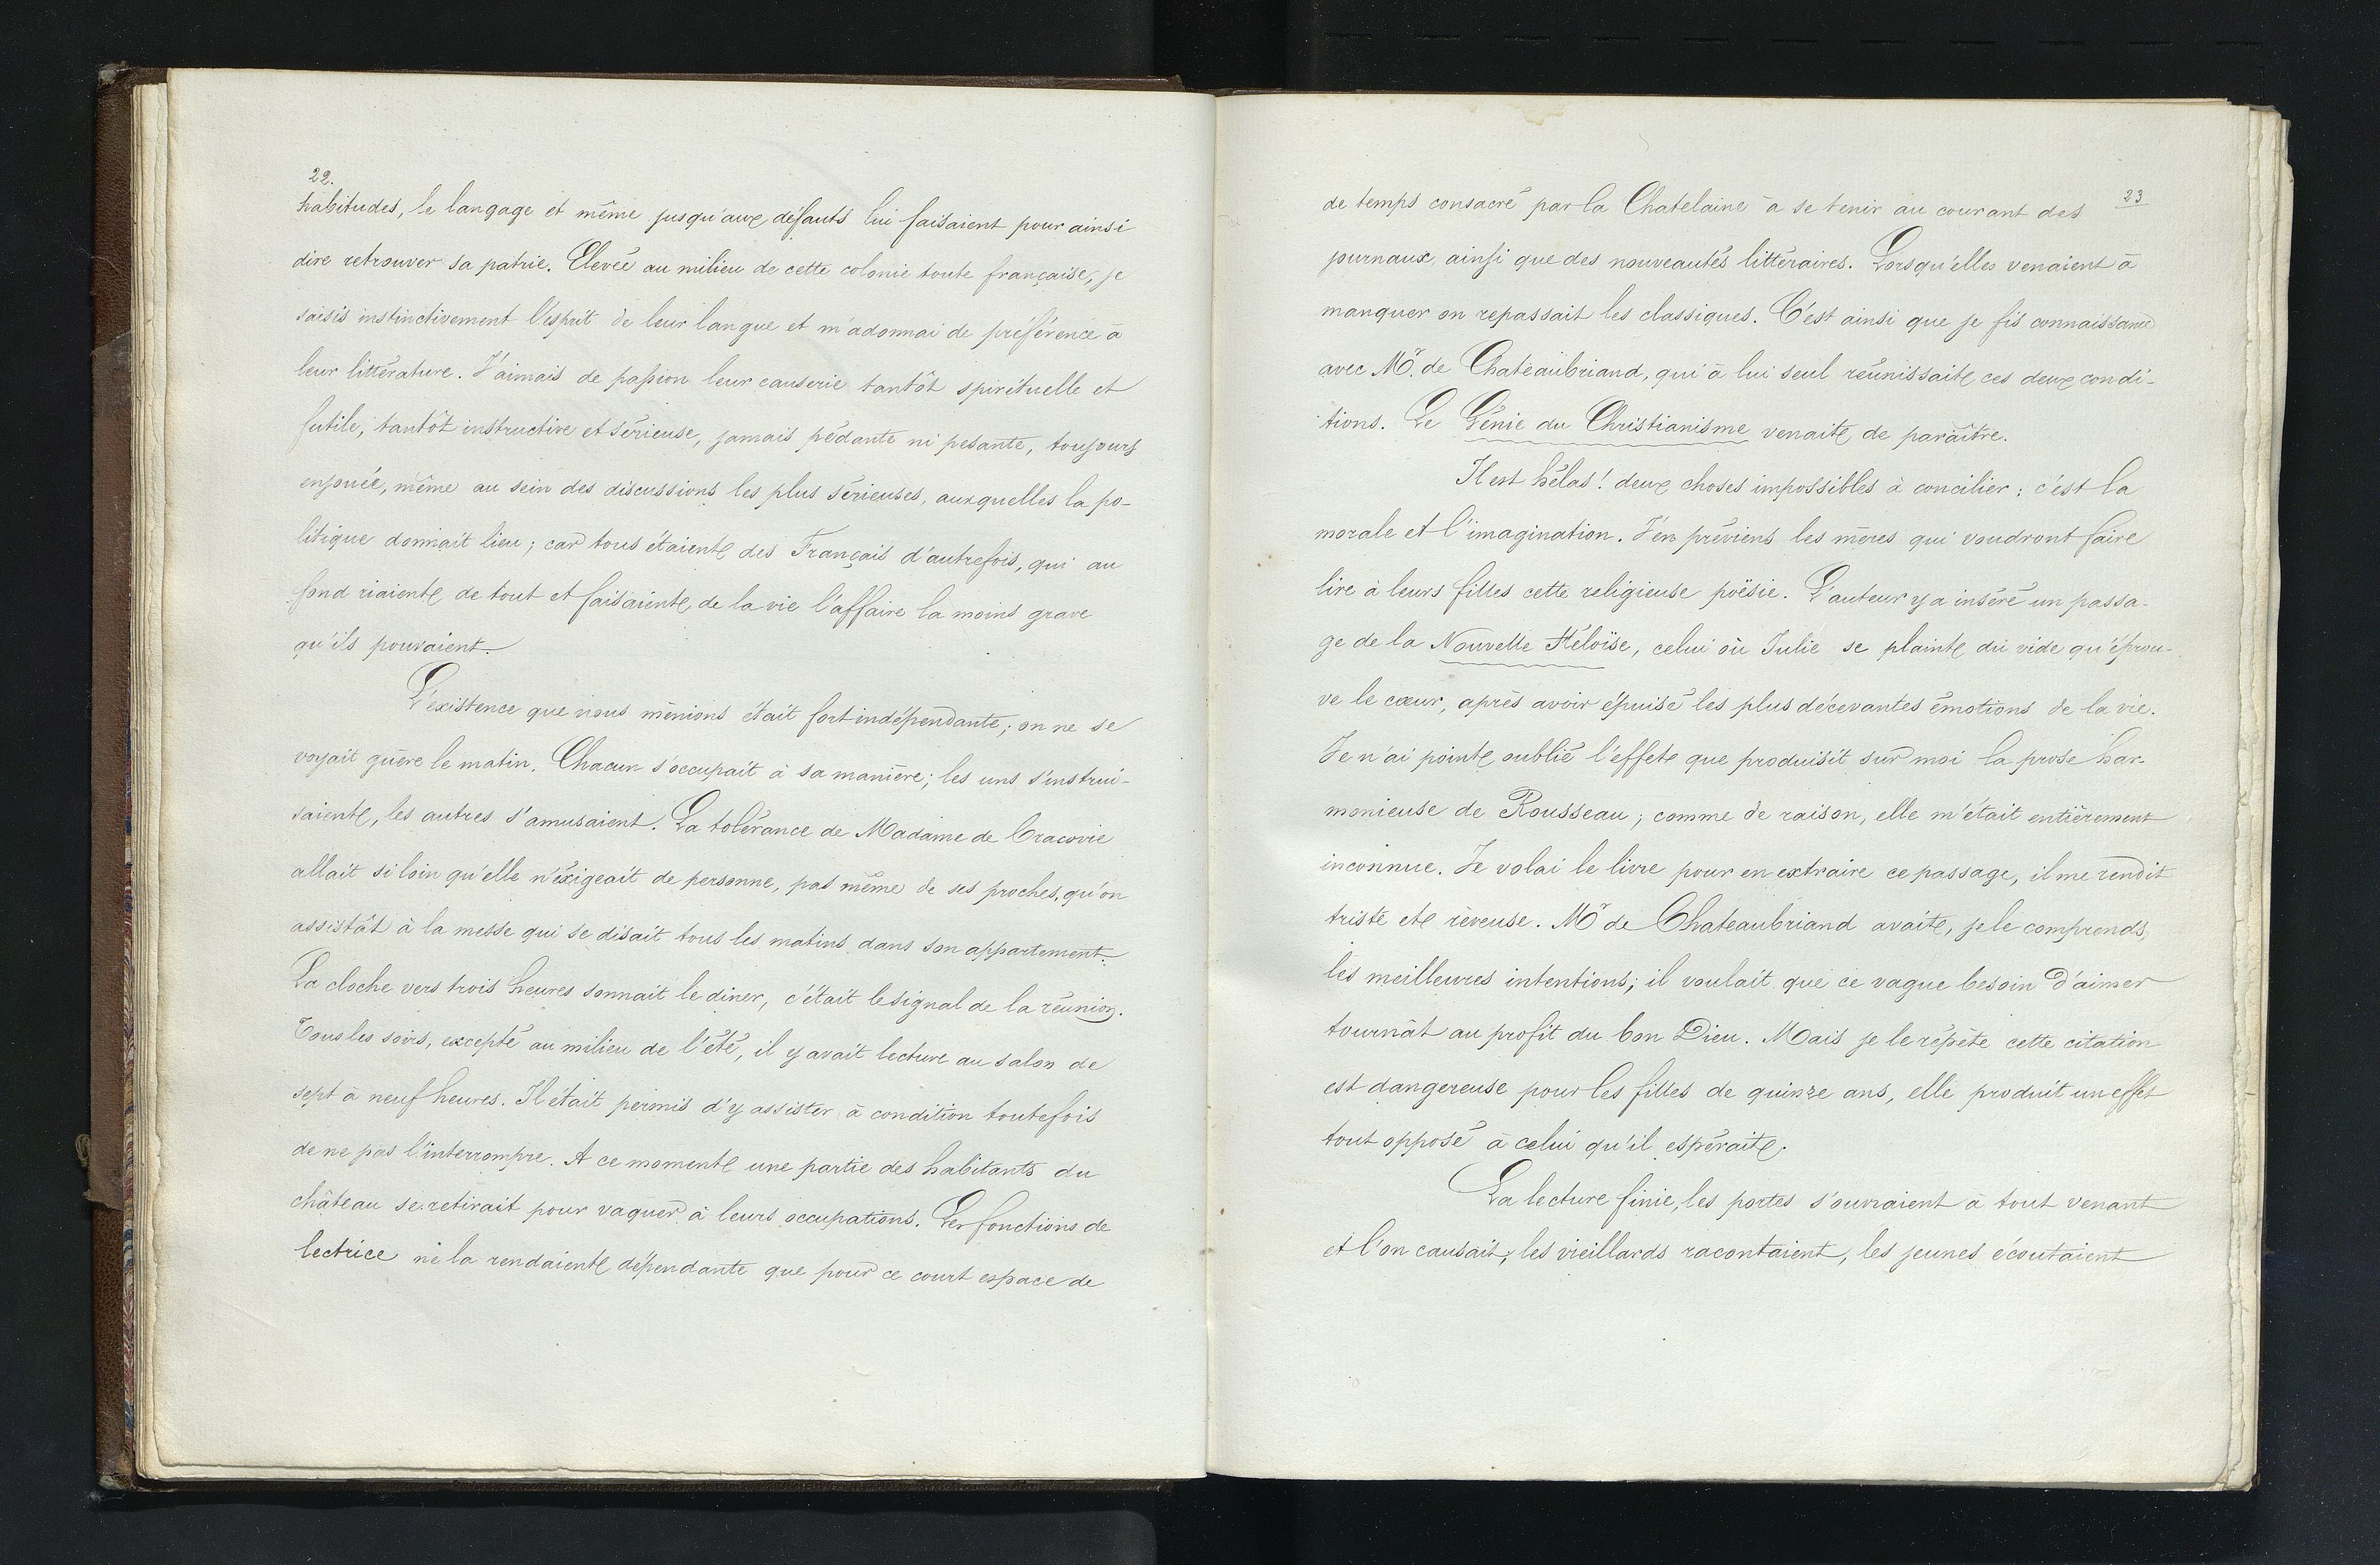 22.
habitudes, le langage et même jusqu'aux défauts lui faisaient pour ainsi
dire retrouver sa patrie. Elevée au milieu de cette colonie toute française, je
saisis instinctivement l'esprit de leur langue et m'adonnai de préférence à
leur littérature. J'aimais de passion leur causerie tantôt spirituelle et
futile, tantôt instructive et sérieuse, jamais pédante ni pesante, toujours
enjouée, même au sein des discussions les plus sérieuses, auxquelles la po-
litique donnait lieu; car tous étaient des Français d'autrefois, qui au
fond riaient de tout et faisaient de la vie l'affaire la moins grave
qu'ils pouvaient.
L'existence que nous ménions était fort indépendante; on ne se
voyait guère le matin. Chacun s'occupait à sa manière; les uns s'instrui-
saient, les autres s'amusaient. La tolérance de Madame de Cracovie
allait si loin qu'elle n'éxigeait de personne, pas même de ses proches, qu'on
assistât à la messe qui se disait tous les matins dans son appartement.
La cloche vers trois heures sonnait le diner, c'était le signal de la réunion.
Tous les soirs, excepté au milieu de l'été, il y avait lecture au salon de
sept à neuf heures. Il était permis d'y assister à condition toutefois
de ne pas l'interrompre. A ce moment une partie des habitants du
château se retirait pour vaquer à leurs occupations. Les fonctions de
lectrice ne la rendaient dépendante que pour ce court espace de
23
de temps consacré par la Chatelaine à se tenir au courant des
journaux, ainsi que des nouveautés littéraires. Lorsqu'elles venaient à
manquer on repassait les classiques. C'est ainsi que je fis connaissance
avec Mr. de Chateaubriand, qui à lui seul réunissait ces deux condi-
tions. Le Génie du Christianisme venait de paraître.
Il est hélas! deux choses impossibles à concilier: c'est la
morale et l'imagination. J'en préviens les mères qui voudront faire
lire à leurs filles cette religieuse poësie. L'auteur y a inséré un passa-
ge de la Nouvelle Héloïse, celui où Julie se plaint du vide qu'éprou-
ve le cœur, après avoir épuisé les plus décevantes émotions de la vie.
Je n'ai point oublié l'effet que produisit sur moi la prose har-
monieuse de Rousseau; comme de raison, elle m'était entièrement
inconnue. Je volai le livre pour en extraire ce passage, il me rendit
triste et rêveuse. Mr de Chateaubriand avait, je le comprends,
les meilleures intentions; il voulait que ce vague besoin d'aimer
tournât au profit du bon Dieu. Mais je le répète cette citation
est dangereuse pour les filles de quinze ans, elle produit un effet
tout opposé à celui qu'il espérait.
La lecture finie, les portes s'ouvraient à tout venant
et l'on causait; les vieillards racontaient, les jeunes écoutaient